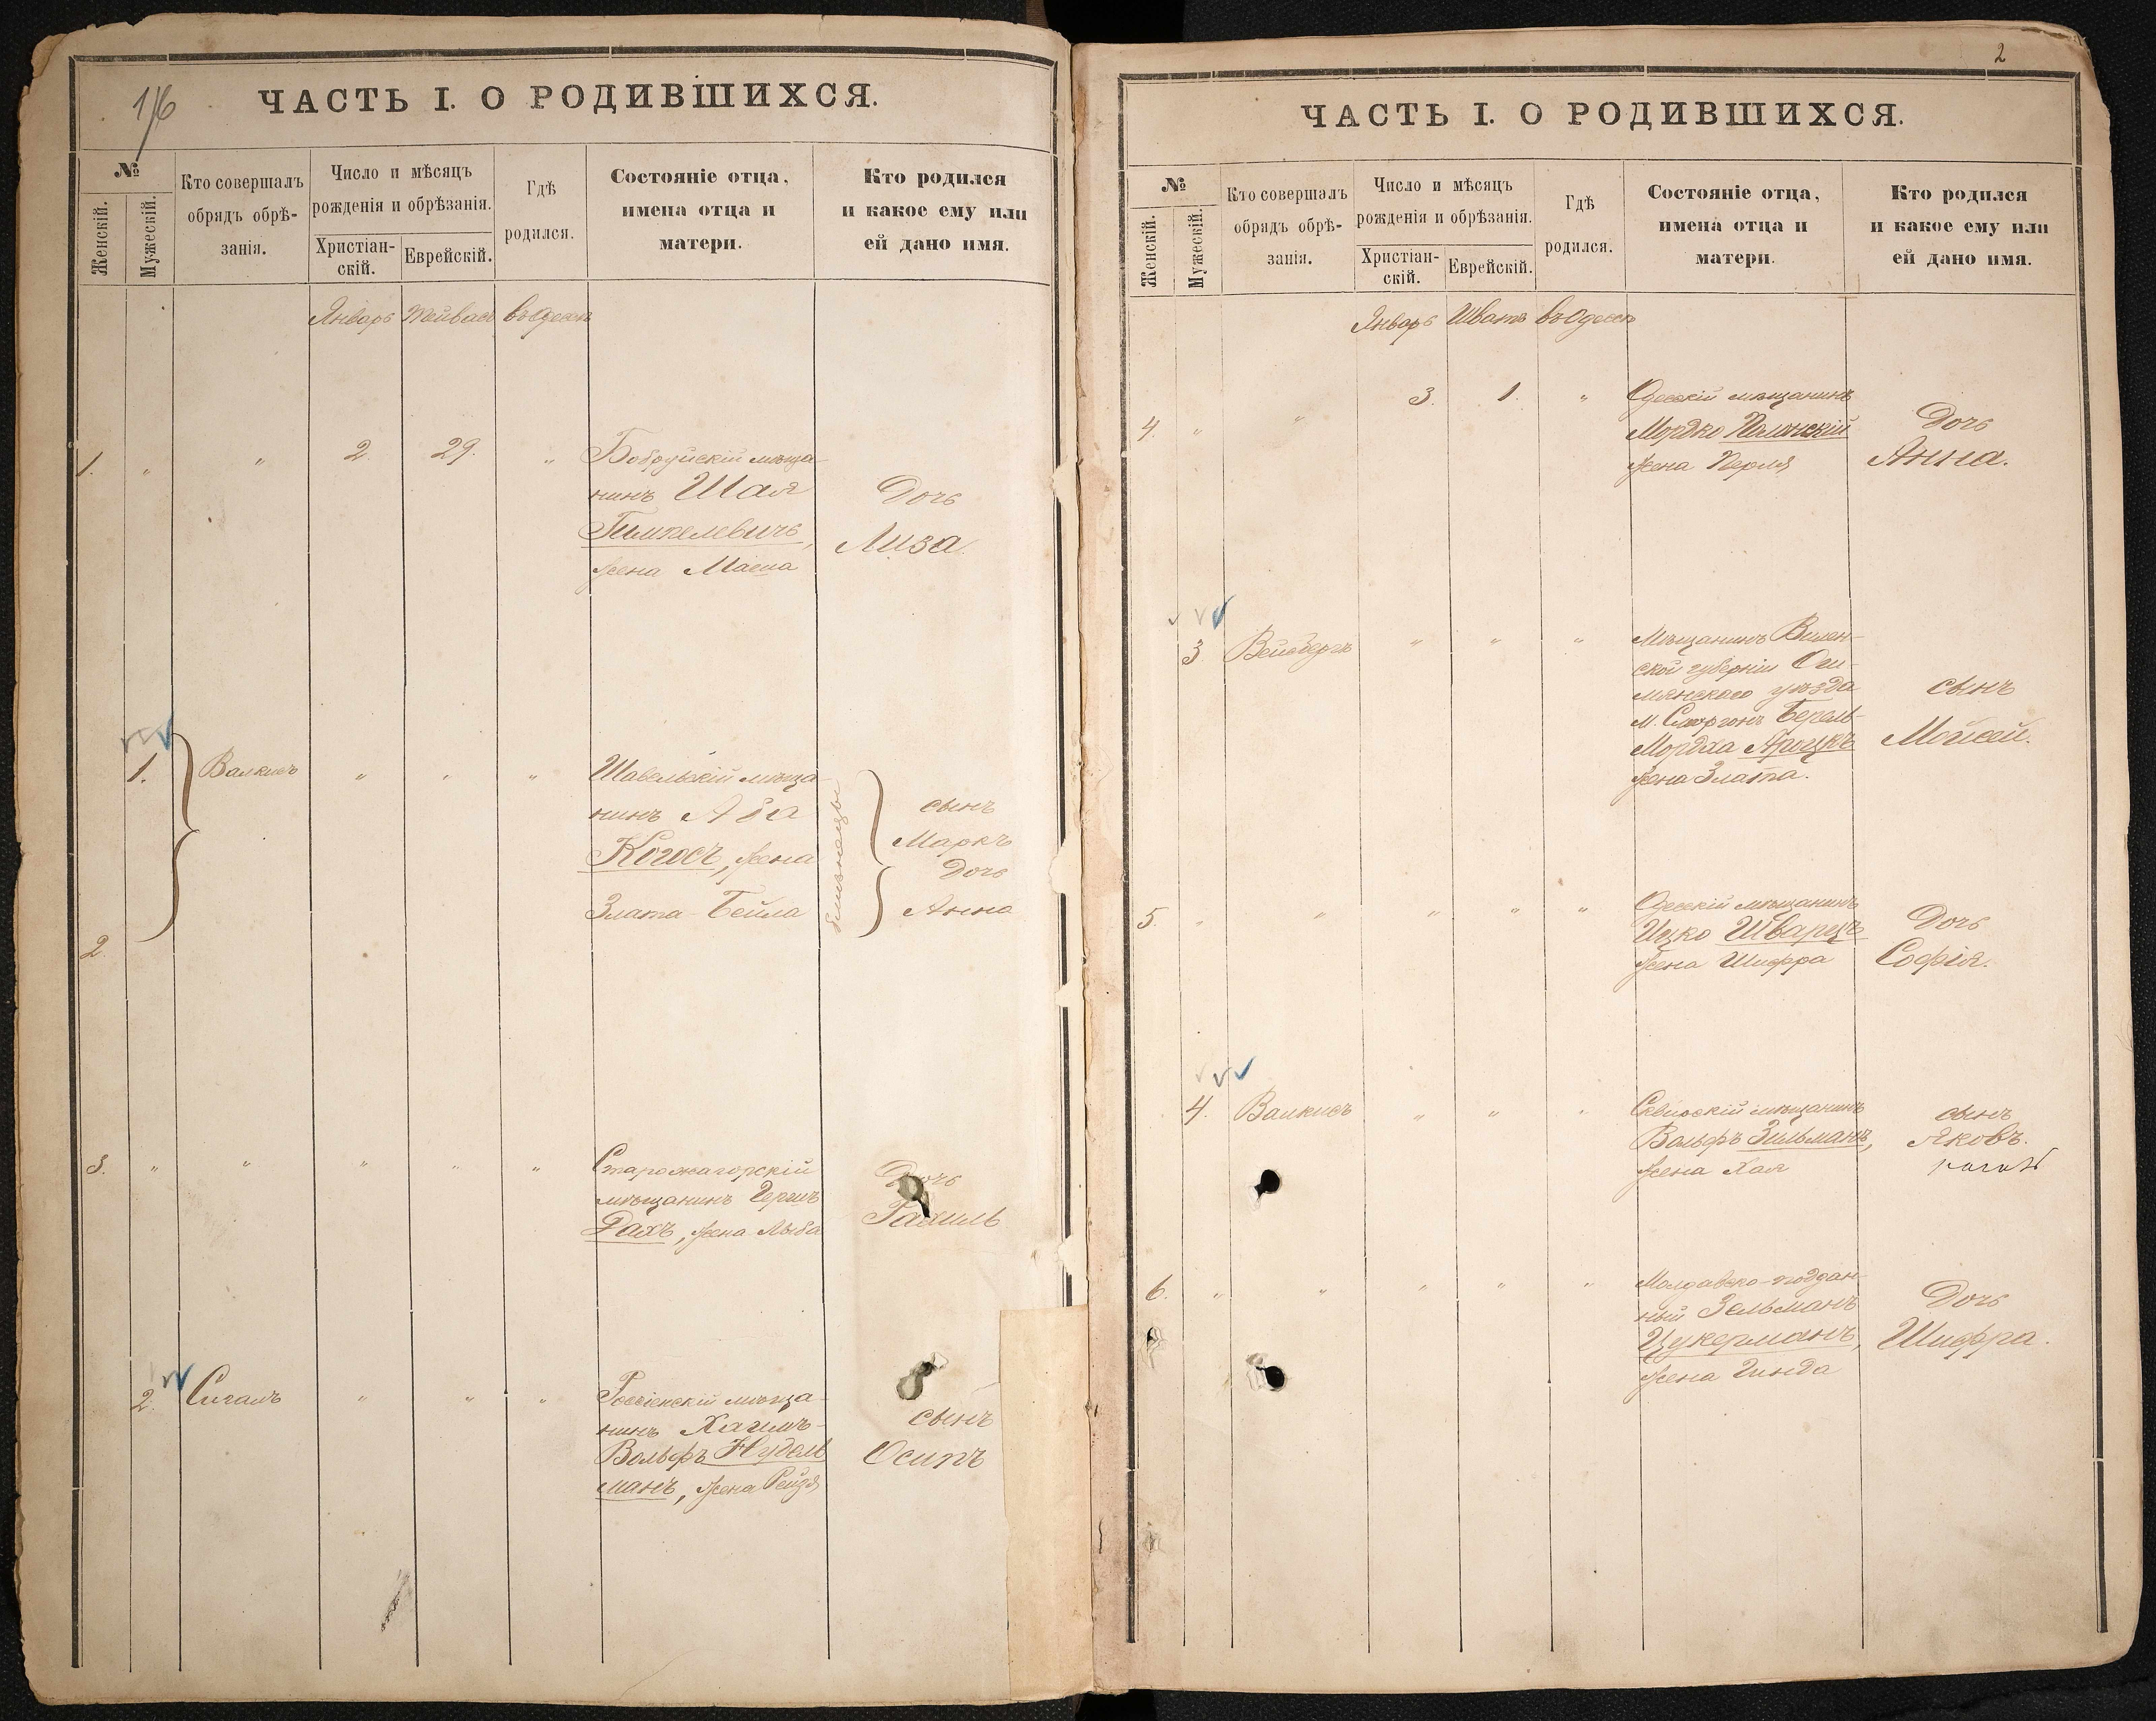 1/6
ЧАСТЬ I. О РОДИВШИХСЯ.
№
Женскій.
Мужескій.
Кто совершалъ
обрядъ обрѣ-
занія.
Число и мѣсяцъ
рожденія и обрѣзанія.
Христіан-
скій.
Еврейскій.
Гдѣ
родился.
Состояніе отца,
имена отца и
матери.
Кто родился
и какое ему или
ей дано имя.
Январь Тейвасъ въ Одессѣ
1. " " 2. 29. "
Бобруйскій мѣща-
нинъ Шая
Гимпелевичъ,
жена Маша
Дочь
Лиза.
1. Валкисъ " " "
2
Шавельскій мѣща
нинъ Аба
Когосъ, жена
Злата-Бейла
близнецы
сынъ
Маркъ
Дочь
Анна
3. " " " " "
Старожагорскій
мѣщанинъ Гершъ
Рахъ, жена Либа
Дочь
Рахиль
2. Сигалъ " " "
Россіенскій мѣща-
нинъ Хаимъ-
Вольфъ Нудель
манъ, жена Рейзя
сынъ
Осипъ
2
ЧАСТЬ I. О РОДИВШИХСЯ.
№
Женскій.
Мужескій.
Кто совершалъ
обрядъ обрѣ-
занія.
Число и мѣсяцъ
рожденія и обрѣзанія.
Христіан-
скій.
Еврейскій.
Гдѣ
родился.
Состояніе отца,
имена отца и
матери.
Кто родился
и какое ему или
ей дано имя.
Январь Шватъ въ Одессѣ
4. " " 3. 1. "
Одесскій мѣщанинъ
Мордко Полонскій
жена Перля
Дочь
Анна.
3 Вейсбергъ " " "
Мѣщанинъ Вилен-
ской губерніи Ош-
мянскаго уѣзда
м. Сморгонь Берель-
Мордха
жена Злата.
сынъ
Мойсей.
5. " " " " "
Одесскій мѣщанинъ
Ицко Шварцъ
жена Шифра
Дочь
Софія.
4. Валкисъ " " "
Сквирскій мѣщанинъ
Вольфъ Зильманъ,
жена Хая
сынъ
Яковъ.
6. " " " " "
Молдавско-поддан-
ный Зельманъ
Цукерманъ,
жена Гинда
Дочь
Шифра.